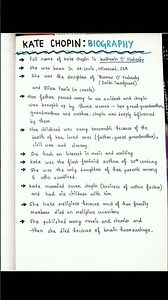 KATE CHOPIN: BIOGRAPHY
→ Full name of kate chopin is Katherin O' Flaherty
→ She was born in St. Louis, Missouri, USA
→ She was the daughter of Thomas O' Flaherty
and Eliza Faris (a creole).
→ Her father passed away in an accident and chopin
was brought up by three women - her great grandmother,
grandmother and mother. chopin was deeply influenced by
them
→ Her childhood was very miserable because of the
death of her loved ones (father, parent grandmother),
civil war and slavery.
→ She had an interest in music and writing
→ Kate was the first feminist author of 20th century
→ She was the only daughter of five parents among
5 who survived.
→ Kate married Oscar chopin (business of cotton factor)
and had six children with him.
→ She hate religious because most of her family
members died on religious occasions
→ She published many novels and stories and
then she died because of brain haemorrhage.